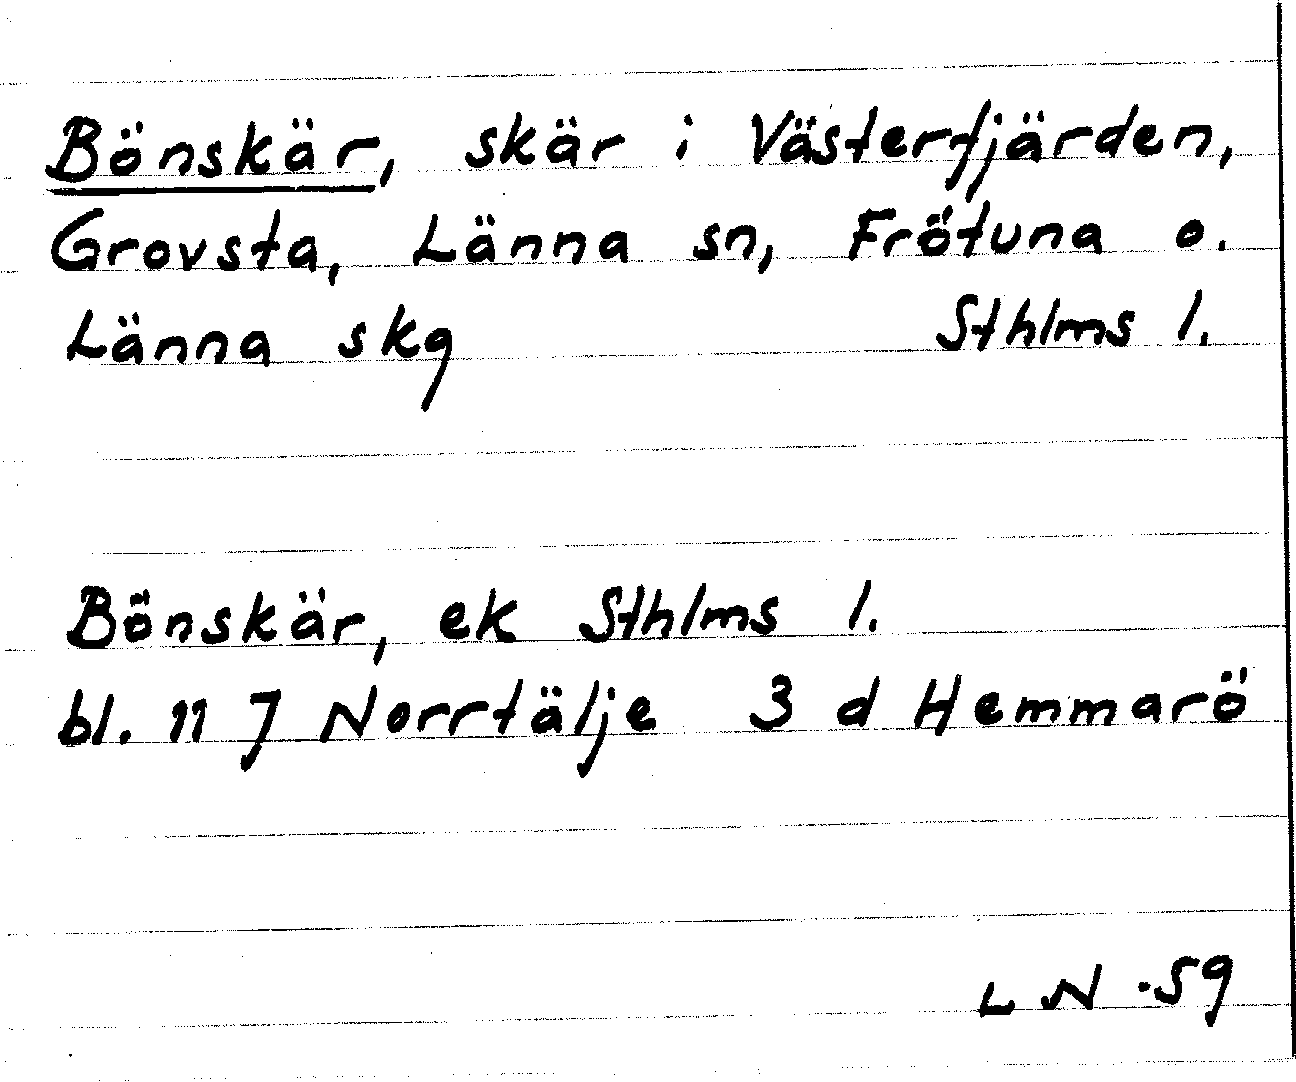 Bönskär, skär i Västerfjärden,
Grovsta, Länna sn, Frötuna o.
Länna skg Sthlms l.
Bönskär, ek Sthlms l.
bl. 11 J Norrtälje 3 d Hemmarö
L N .59